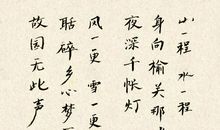 山一程 水一程
身向榆关那
夜深千帐灯
风一更 雪一更
聒碎乡心梦
故园无此声